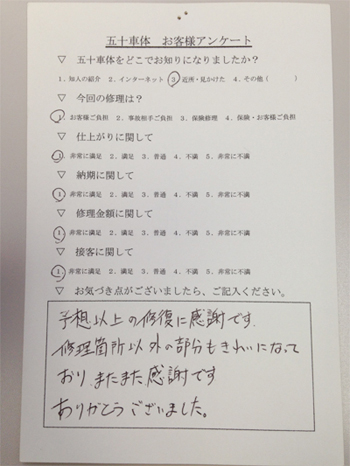 五十車体 お客様アンケート
▽ 五十車体をどこでお知りになりましたか?
1．知人の紹介 2．インターネット 3．近所・見かけた 4．その他（ ）
▽ 今回の修理は?
1．お客様ご負担 2．事故相手ご負担 3．保険修理 4．保険・お客様ご負担
▽ 仕上がりに関して
1．非常に満足 2．満足 3．普通 4．不満 5．非常に不満
▽ 納期に関して
1．非常に満足 2．満足 3．普通 4．不満 5．非常に不満
▽ 修理金額に関して
1．非常に満足 2．満足 3．普通 4．不満 5．非常に不満
▽ 接客に関して
1．非常に満足 2．満足 3．普通 4．不満 5．非常に不満
▽ お気づき点がございましたら、ご記入ください。
予想以上の修復に感謝です.
修理箇所以外の部分もきれいになって
おり、またまた感謝です
ありがとうございました。